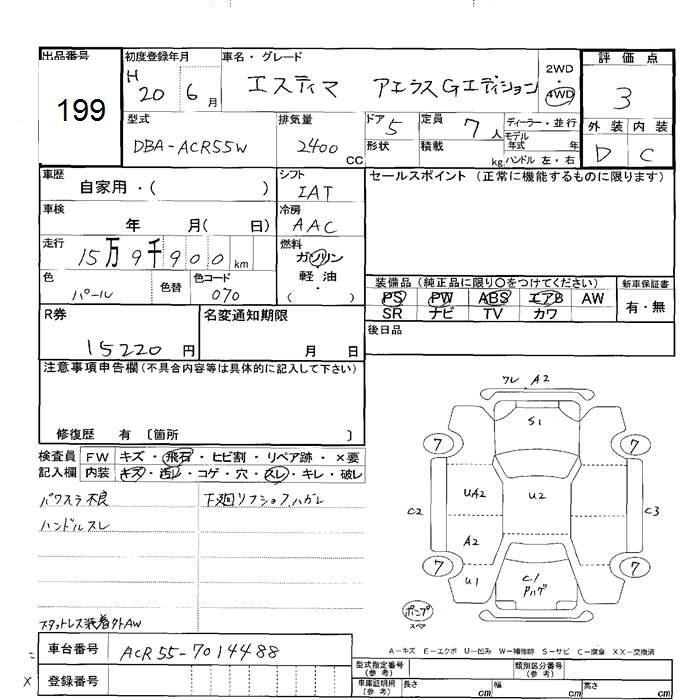 出品番号
199
初度登録年月
H 20 6月
車名・グレード
エスティマ アエラスGエディション
2WD
・
4WD
評価点
3
外装 内装
D C
型式
DBA-ACR55W
排気量
2400 CC
ドア 5
形状
定員 7人
積載 kg
ディーラー・並行
モデル
年式 年
ハンドル 左・右
車歴
自家用・( )
シフト
IAT
車検
年 月( 日)
冷房
AAC
走行
15万9千900km
燃料
ガソリン
・
軽油
・
( )
色
パール
色替
色コード
070
セールスポイント (正常に機能するものに限ります)
装備品 (純正品に限り○をつけてください)
PS PW ABS エアB AW
SR ナビ TV カワ
新車保証書
有・無
後日品
R券
15220円
名変通知期限
月 日
注意事項申告欄(不具合内容等は具体的に記入して下さい)
修復歴 有 〔箇所 〕
検査員
記入欄
FW キズ・飛石・ヒビ割・リペア跡・×要
内装 キズ・汚レ・コゲ・穴・スレ・キレ・破レ
パワスラ不良
ハンドルスレ
下廻リフショク、ハガレ
スタットレス装着外AW
ワレ A2
S1
7
7
UA2
U2
C2
C3
A2
7
7
U1
C1
ハゲ
パンク
スペア
車台番号
ACR55-7014488
登録番号
A-キズ E-エクボ U-凹み W-補修跡 S-サビ C-腐食 XX-交換済
型式指定番号
(参考)
類別区分番号
(参考)
車庫証明用
(参考)
長さ cm
幅 cm
高さ cm